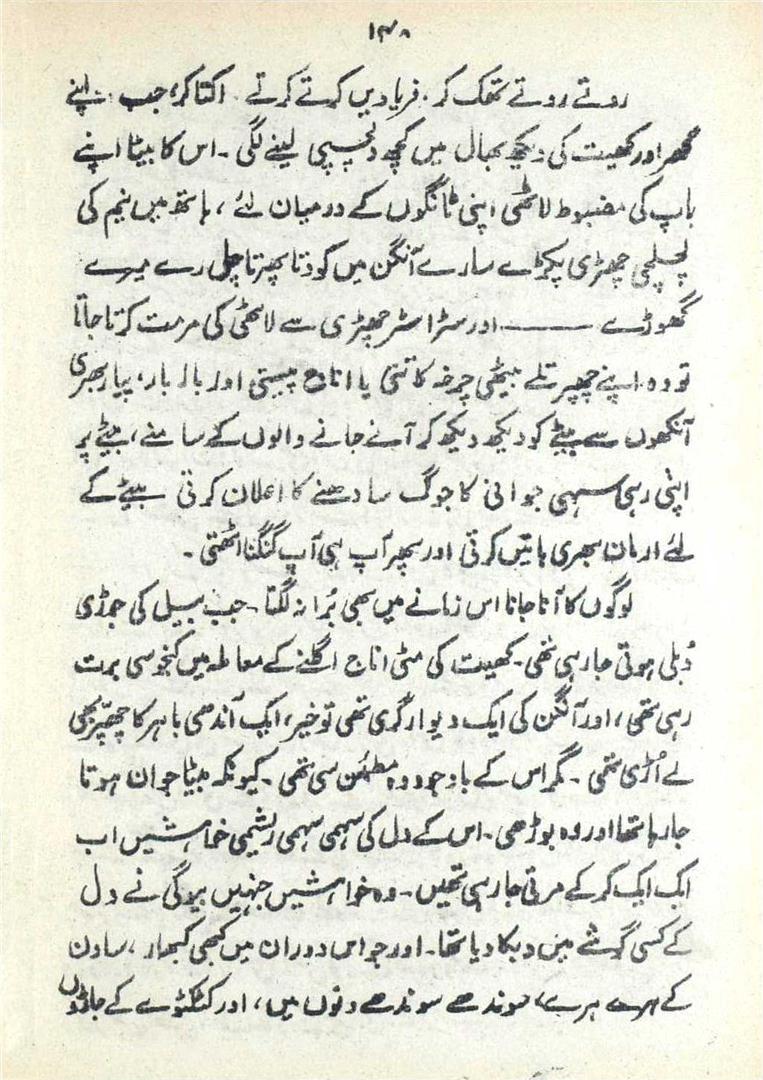 ۱۴۸
روتے روتے تھک کر، فریادیں کرتے کرتے اکتا کر، جب اپنے
گھر اور کھیت کی دیکھ بھال میں کچھ دلچسپی لینے لگی۔ اس کا بیٹا اپنے
باپ کی مضبوط لاٹھی اپنی ٹانگوں کے درمیان لئے، ہاتھ میں نیم کی
لچلچی چھڑی پکڑے سارے آنگن میں کودتا پھرتا چل رے میرے
گھوڑے ——— اور سڑا سڑ چھڑی سے لاٹھی کی مرمت کرتا جاتا
تو وہ اپنے چھپر تلے بیٹھی چرخہ کاتتی یا اناج پیستی اور بار بار، پیار بھری
آنکھوں سے بیٹے کو دیکھ دیکھ کر آنے جانے والوں کے سامنے، بیٹے پر
اپنی رہی سہی جوانی کا جوگ سادھنے کا اعلان کرتی بیٹے کے
لئے ارمان بھری باتیں کرتی اور پھر آپ ہی آپ گنگنا اٹھتی۔
لوگوں کا آنا جانا اس زمانے میں بھی بُرا نہ لگتا۔ جب بیل کی جوڑی
دُبلی ہوتی جا رہی تھی۔ کھیت کی مٹی اناج اگلنے کے معاملہ میں کنجوسی برت
رہی تھی، اور آنگن کی ایک دیوار گری تھی تو خیر، ایک آندھی باہر کا چھپّر بھی
لے اُڑی تھی۔ مگر اس کے باوجود وہ مطمئن سی تھی۔ کیونکہ بیٹا جوان ہوتا
جا رہا تھا اور وہ بوڑھی۔ اس کے دل کی سہمی سہمی ریشمی خواہشیں اب
ایک ایک کر کے مرتی جا رہی تھیں۔ وہ خواہشیں جنہیں بیوگی نے دل
کے کسی گوشے میں دبکا دیا تھا۔ اور جو اس دوران میں کبھی کبھار، ساون
کے ہرے ہرے، سوندھے سوندھے دنوں میں، اور کٹکٹوے کے جاڑوں